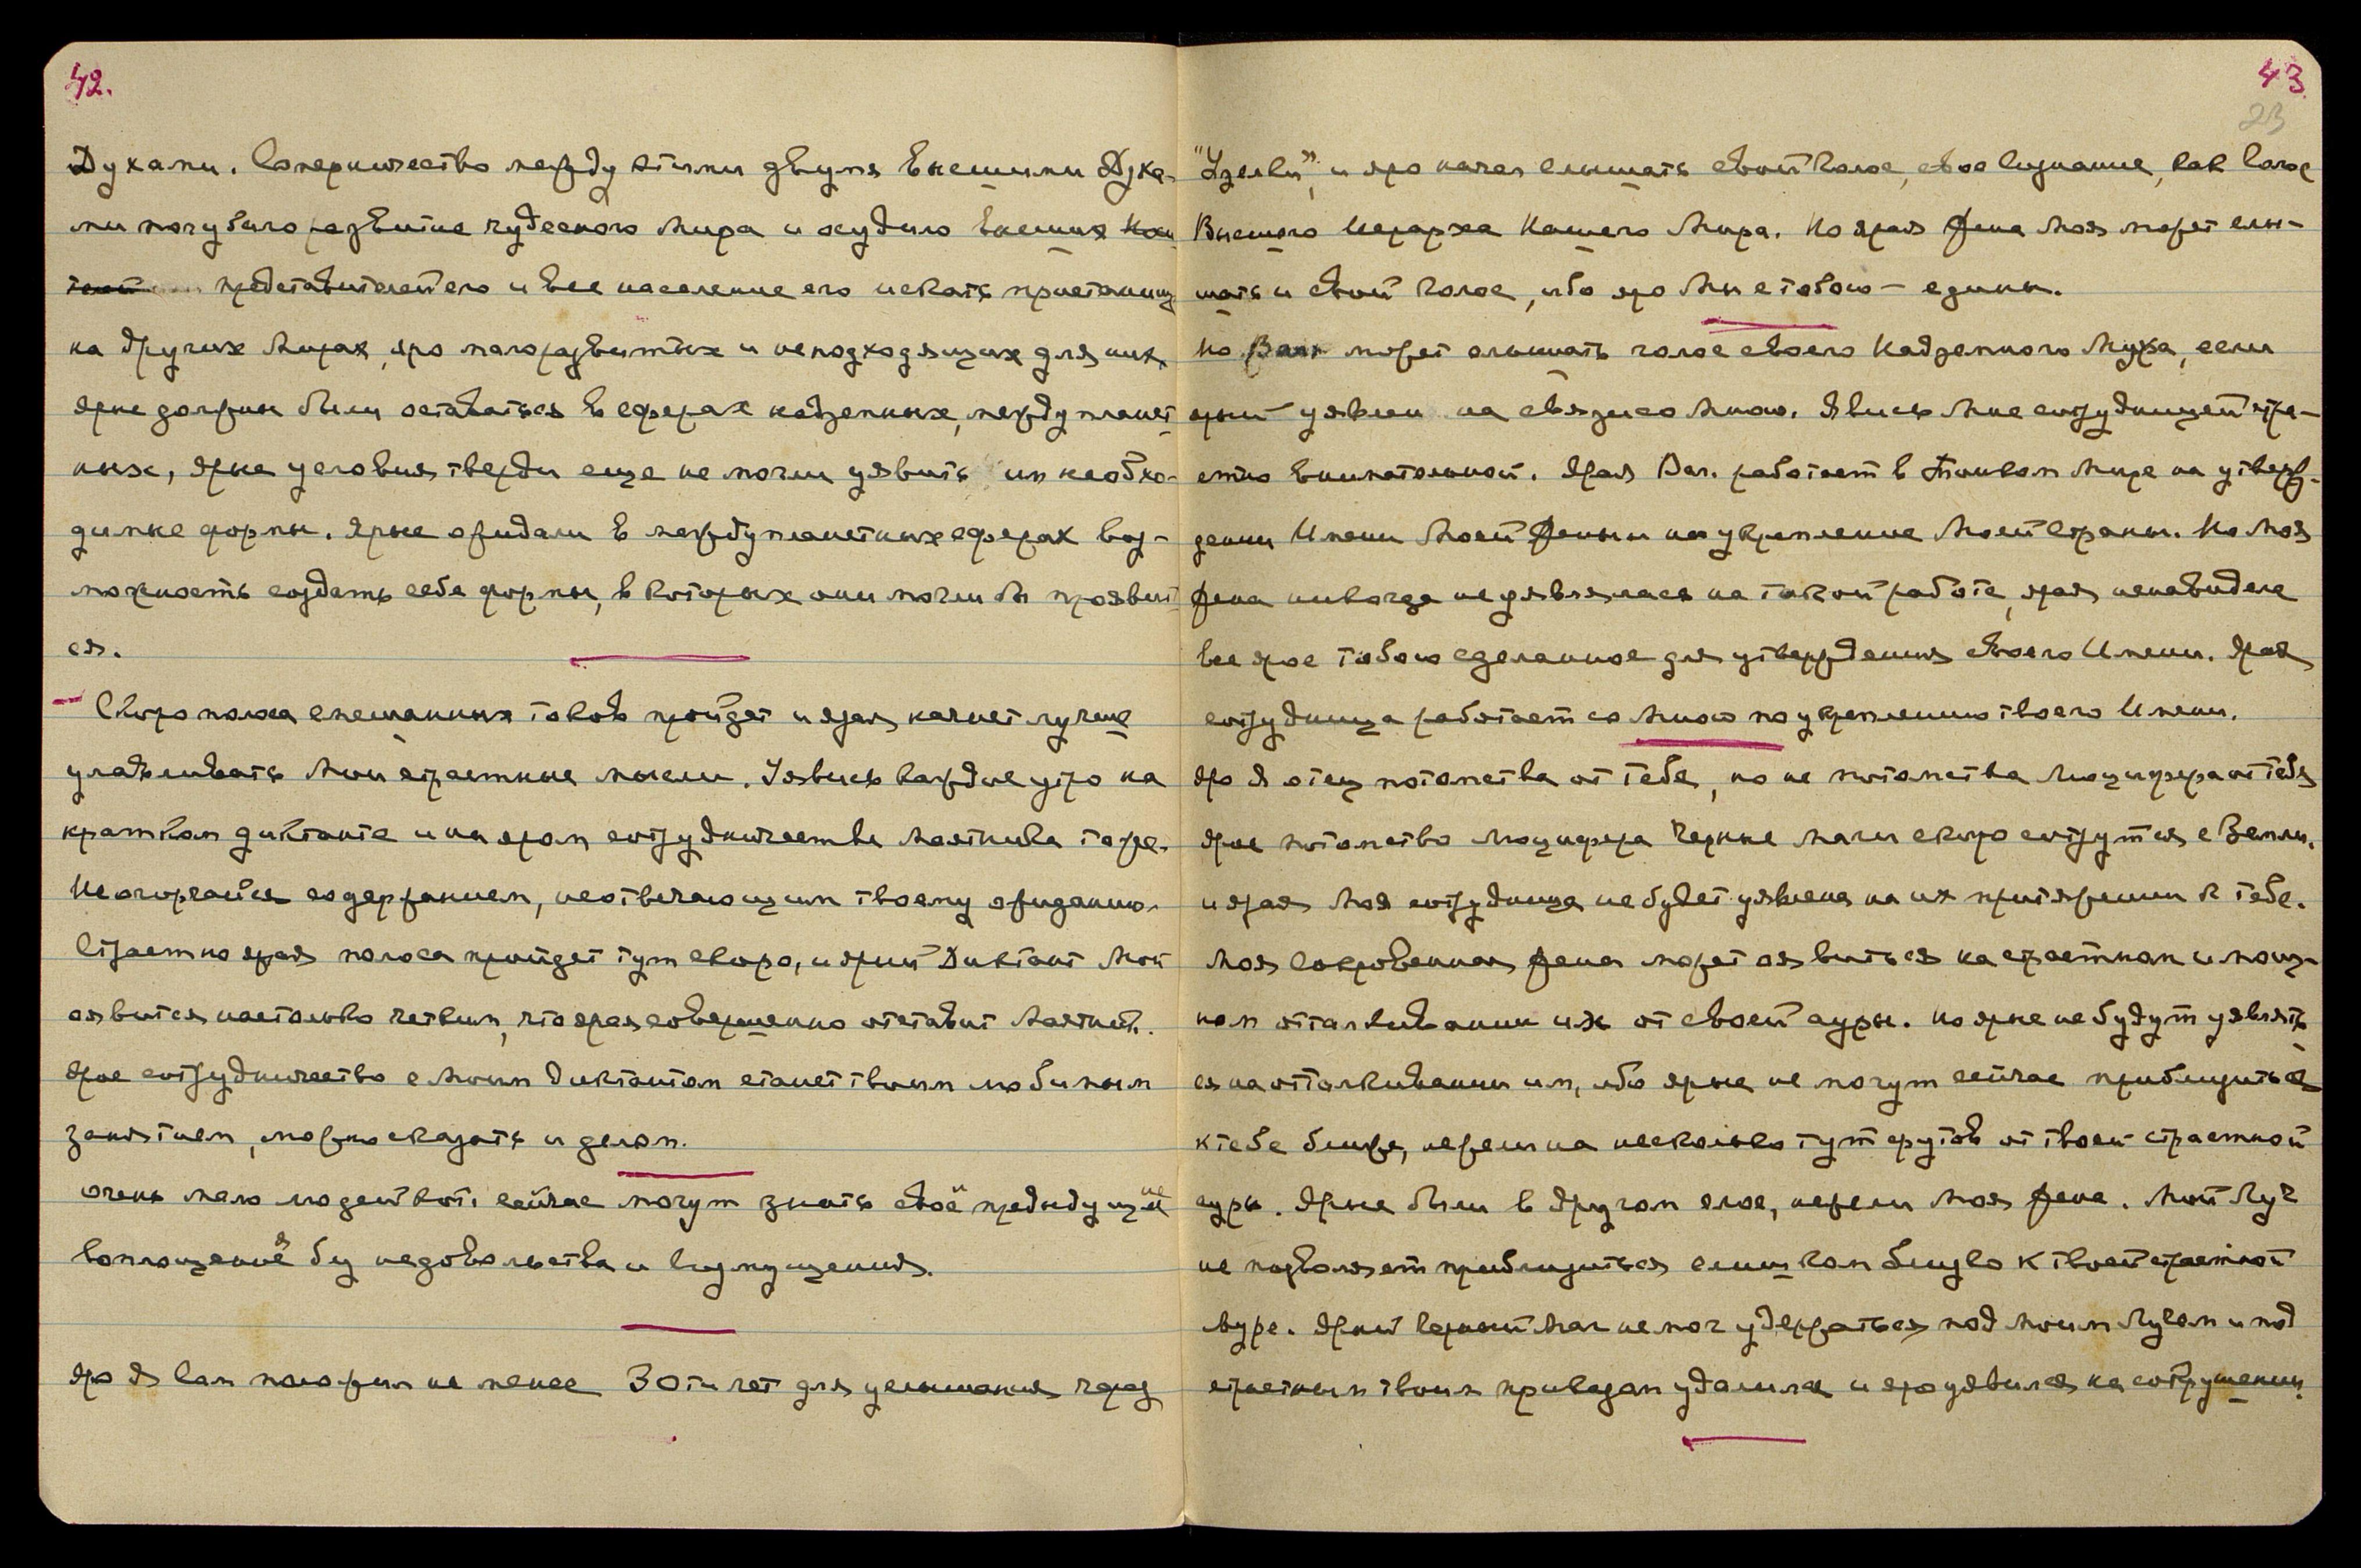 42.
Духами. Соперничество между этими двумя Высшими Духа-
ми погубило развитие чудесного Мира и осудило высших
представителей его и все население его искать пристанищ
на других Мирах, яро малоразвитых и неподходящих для них,
ярые должны были оставаться в сферах надземных, междупланет
ных, ярые условия тверди еще не могли уявить им необхо-
димые формы. Ярые ожидали в междупланетных сферах воз-
можность создать себе формы, в которых они могли бы проявить
ся.
Скоро полоса смешанных токов пройдет и ярая начнет лучше
улавливать Мои страстные мысли. Уявись каждое утро на
кратком диктанте и на яром сотрудничестве Маятника тоже.
Не огорчайся содержанием, неотвечающим твоему ожиданию.
Страстно ярая полоса пройдет тут скоро, и ярый Диктант Мой
оявится настолько четким, что ярая совершенно отставит Маятник.
Ярое сотрудничество с Моим Диктантом станет твоим любимым
занятием, можно сказать и делом.
Очень мало людей кот. сейчас могут знать своё предыдущие
воплощения без недовольства и возмущения.
Яро Я Сам положил не менее 30 ти лет для услышания через
43
23
"Узелки", и яро начал слышать свой голос, свое сознание, как голос
Высшего Иерарха Нашего Мира. Но ярая Жена Моя может слы-
шать и свой голос, ибо яро Мы с тобою - едины.
Но Вал. может слышать голос своего Надземного Мужа, если
ярый уявлен на связи со Мною. Явись Мне сотрудницей стра-
стно внимательной. Ярая Вал. работает в Тонком Мире на утверж-
дении Имени Моей Жены и на укрепление Моей Страны. Но Моя
Жена никогда не уявлялась на такой работе, ярая ненавидела
все ярое тобою сделанное для утверждения своего Имени. Ярая
сотрудница работает со Мною по укреплению твоего Имени.
Яро Я отец потомства от Тебя, но не потомства Люцифера от Тебя
Ярое потомство Люцифера Черные маги скоро сотрутся с Земли.
и ярая Моя сотрудница не будет уявлена на их притяжении к тебе.
Моя Сокровенная Жена может оявиться на страстном и мощ-
ном отталкивании их от своей ауры. Но ярые не будут уявлять
ся на отталкивании им, ибо ярые не могут сейчас приблизиться
к тебе ближе, нежели на несколько тут футов от твоей страстной
ауры. Ярые были в другом слое, нежели Моя Жена. Мой Луч
не позволяет приблизиться слишком близко к твоей страстной
ауре. Ярый Черный Маг не мог удержаться под Моим Лучом и под
страстным твоим приказом удалился и яро уявился на сотрушении.